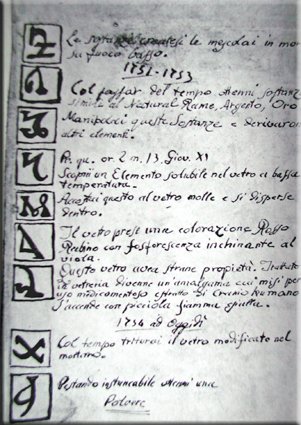 Le sostanze createsi le mescolai in mo
su fuoco basso.
1751-1753
Col passar del tempo ottenni sostanz
simili al Natural Rame, Argento, Oro
Manipolai queste Sostanze e derivaron
altri elementi.
Pr. qu. or. 2 m. 13. Giov. XI
Scoprii un Elemento solubile nel vetro a bassa
temperatura.
Accostai questo al vetro molle e si disperse
dentro.
Il vetro prese una colorazione Rosso
Rubino con fosforescenza inchinante al
viola.
Questo vetro avea strane proprietà. Trattato
in vetreria divenne un amalgama cui misi per
uso medicamentoso estratto di Cranio humano
S'accende con picciola fiamma gialla.
1754 ad Oggidì
Col tempo triturai il vetro modificato nel
mortaio.
Pestando instancabile ottenni una
Polvere